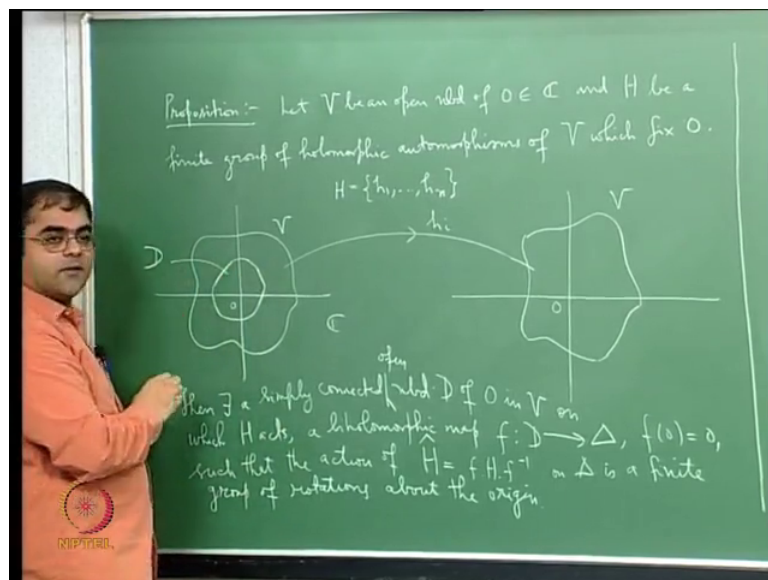 Proposition:- Let V be an open nbd of 0 ∈ ℂ and H be a
finite group of holomorphic automorphisms of V which fix 0.
H = {h₁, ..., hₙ}
D
V
0
ℂ
hᵢ
V
0
open
Then ∃ a simply connected nbd. D of 0 in V on
which H acts, a biholomorphic map f : D → Δ, f(0) = 0,
such that the action of Ĥ = f H f⁻¹ on Δ is a finite
group of rotations about the origin.
NPTEL